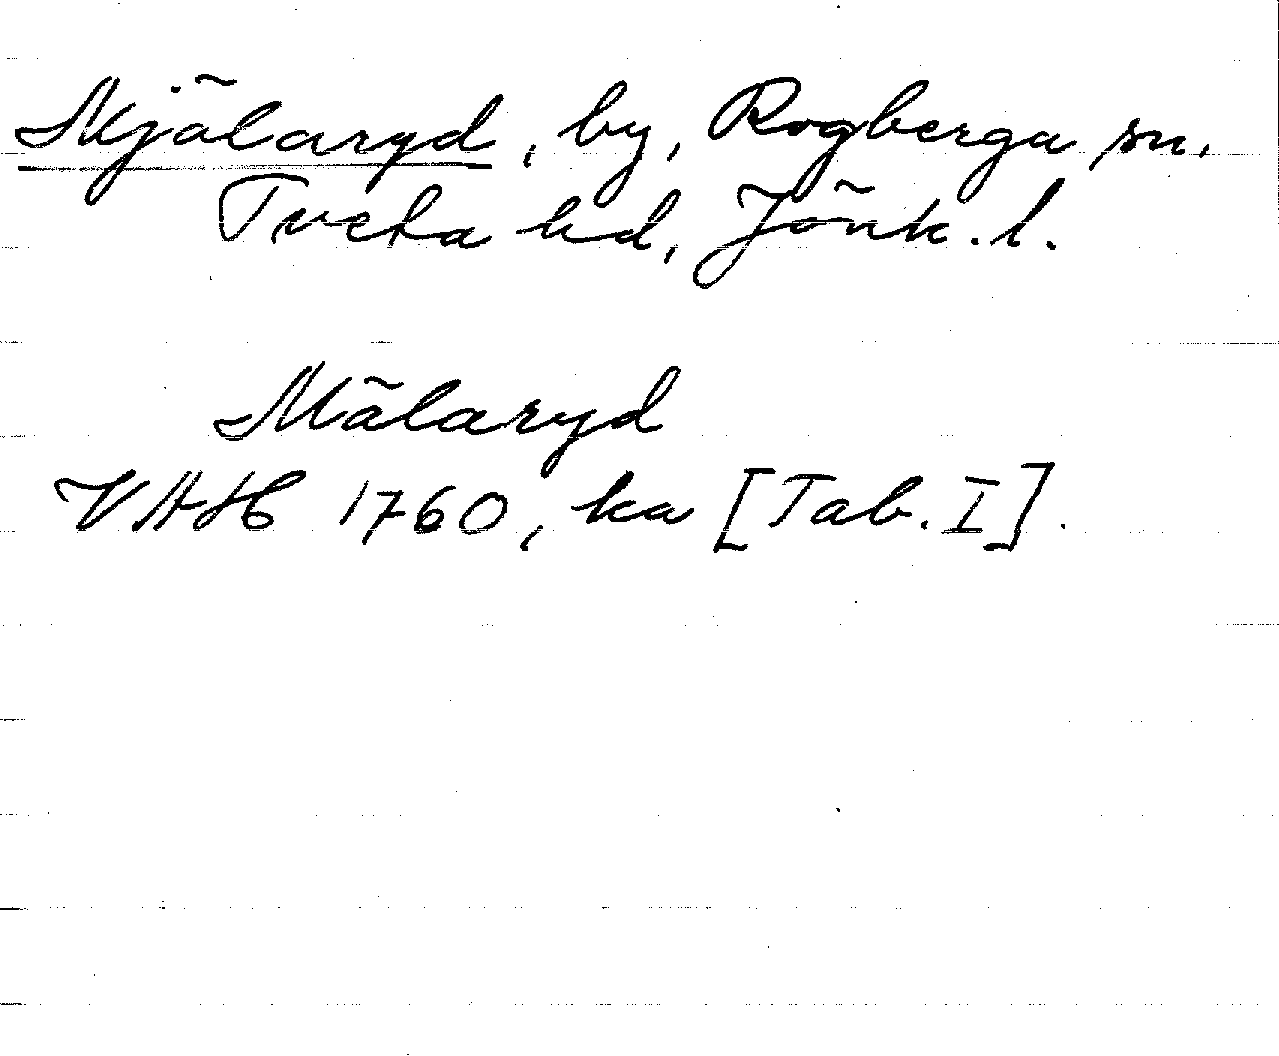 Mjälaryd, by, Rogberga sn.
Tveta hd, Jönk. l.
Mälaryd
VAH 1760, ka [Tab. I].